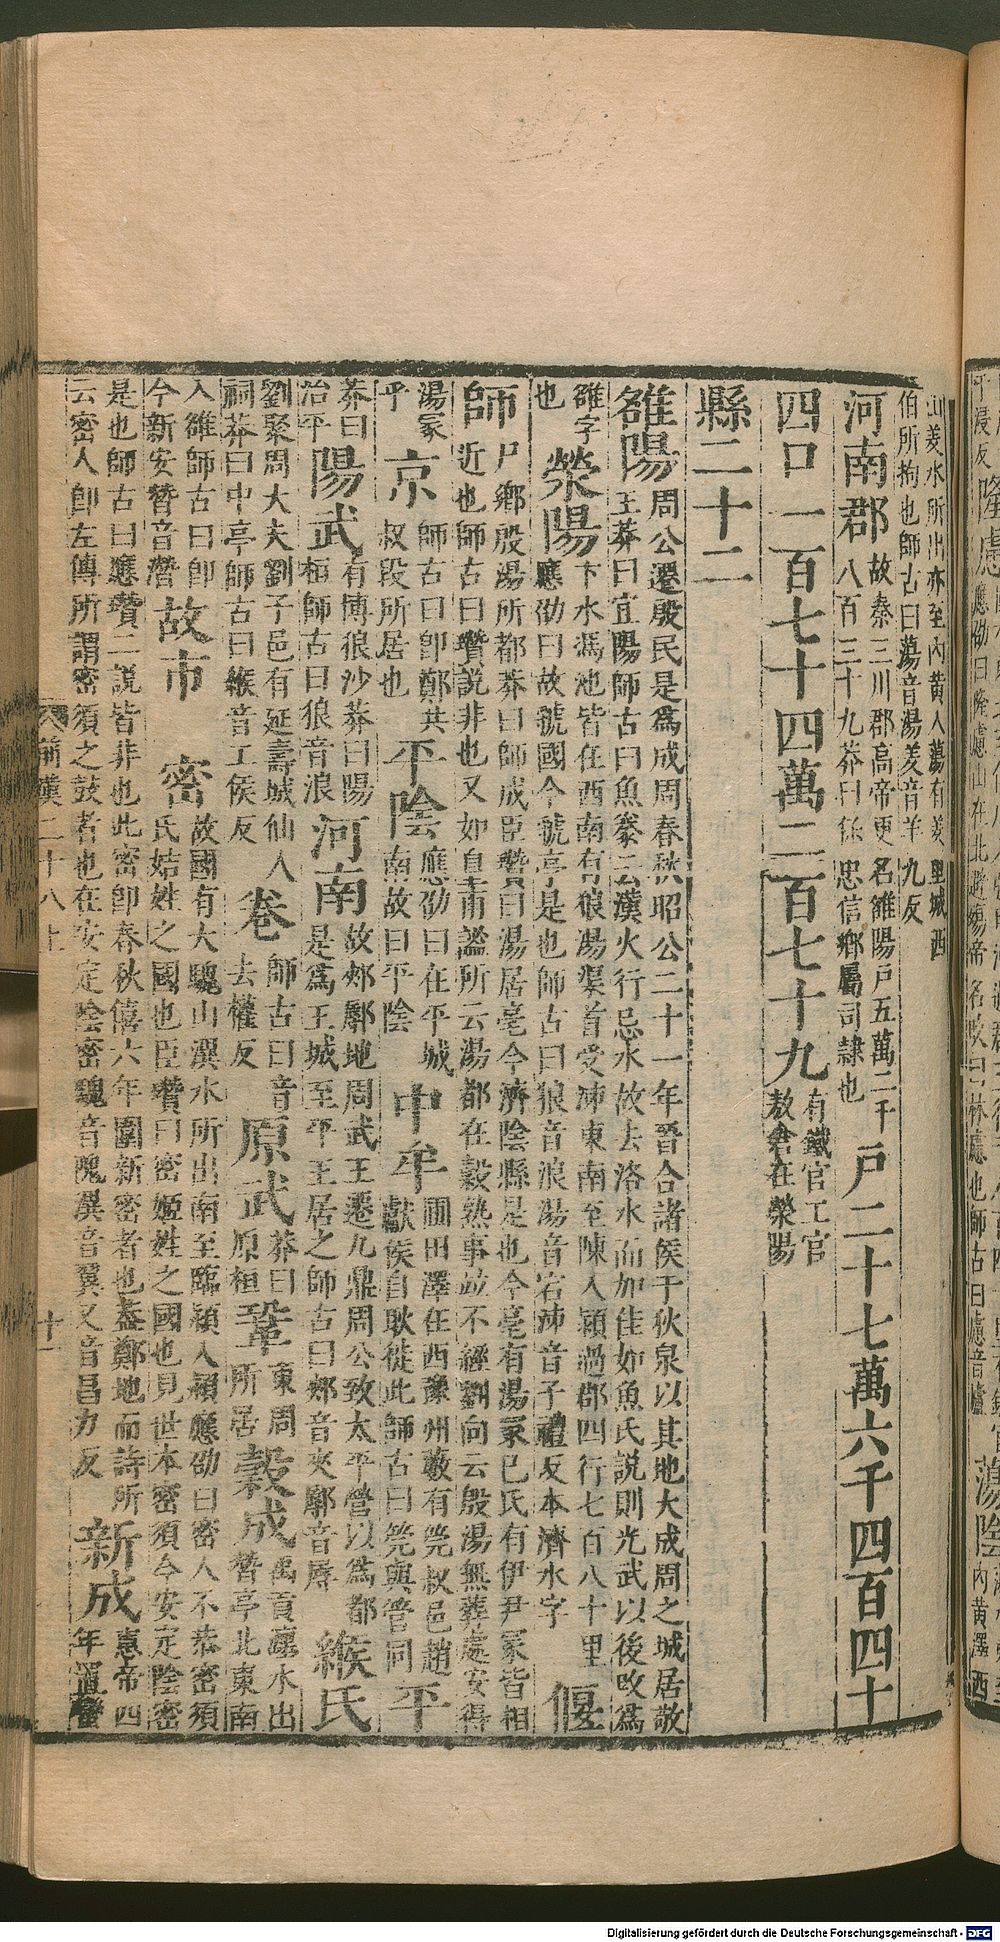 山羑水所出亦至內黃入蕩有羑里城西
伯所拘也師古曰蕩音湯羑音羊九反
河南郡
故秦三川郡高帝更名雒陽戶五萬二千
八百三十九莽曰保忠信鄉屬司隸也
戶二十七萬六千四百四十
四口一百七十四萬二百七十九
有鐵官工官
敖倉在滎陽
縣二十二
雒陽
周公遷殷民是為成周春秋昭公二十一年晉合諸侯于狄泉以其地大成周之城居敬
王莽曰宜陽師古曰魚豢云漢火行忌水故去洛水而加隹如魚氏說則光武以後改為
雒字
也
滎陽
卞水馮池皆在西南有狼湯渠首受泲東南至陳入潁過郡四行七百八十里
應劭曰故虢國今虢亭是也師古曰狼音浪湯音宕泲音子禮反本濟水字
偃
師
尸鄉殷湯所都莽曰師成臣瓚曰湯居亳今濟陰縣是也今亳有湯冢己氏有伊尹冢皆相
近也師古曰瓚說非也又如皇甫謐所云湯都在穀熟事並不經劉向云殷湯無葬處安得
湯冢
乎
京
師古曰即鄭共
叔段所居也
平陰
應劭曰在平城
南故曰平陰
中牟
圃田澤在西豫州藪有筦叔邑趙
獻侯自耿徙此師古曰筦與管同
平
莽曰
治平
陽武
有博狼沙莽曰陽
桓師古曰狼音浪
河南
故郟鄏地周武王遷九鼎周公致太平營以為都
是為王城至平王居之師古曰郟音夾鄏音辱
緱氏
劉聚周大夫劉子邑有延壽城仙人
祠莽曰中亭師古曰緱音工侯反
卷
師古曰音
去權反
原武
莽曰
原桓
鞏
東周
所居
穀成
禹貢瀍水出
朁亭北東南
入雒師古曰即
今新安朁音潛
故市
密
故國有大騩山潩水所出南至臨潁入潁應劭曰密人不恭密須
氏姞姓之國也臣瓚曰密姬姓之國也見世本密須今安定陰密
是也師古曰應瓚二說皆非也此密即春秋僖六年圍新密者也蓋鄭地而詩所
云密人即左傳所謂密須之鼓者也在安定陰密騩音隗潩音翼又音昌力反
新成
惠帝四
年置蠻
前漢二十八上
十一
Digitalisierung gefördert durch die Deutsche Forschungsgemeinschaft - DFG